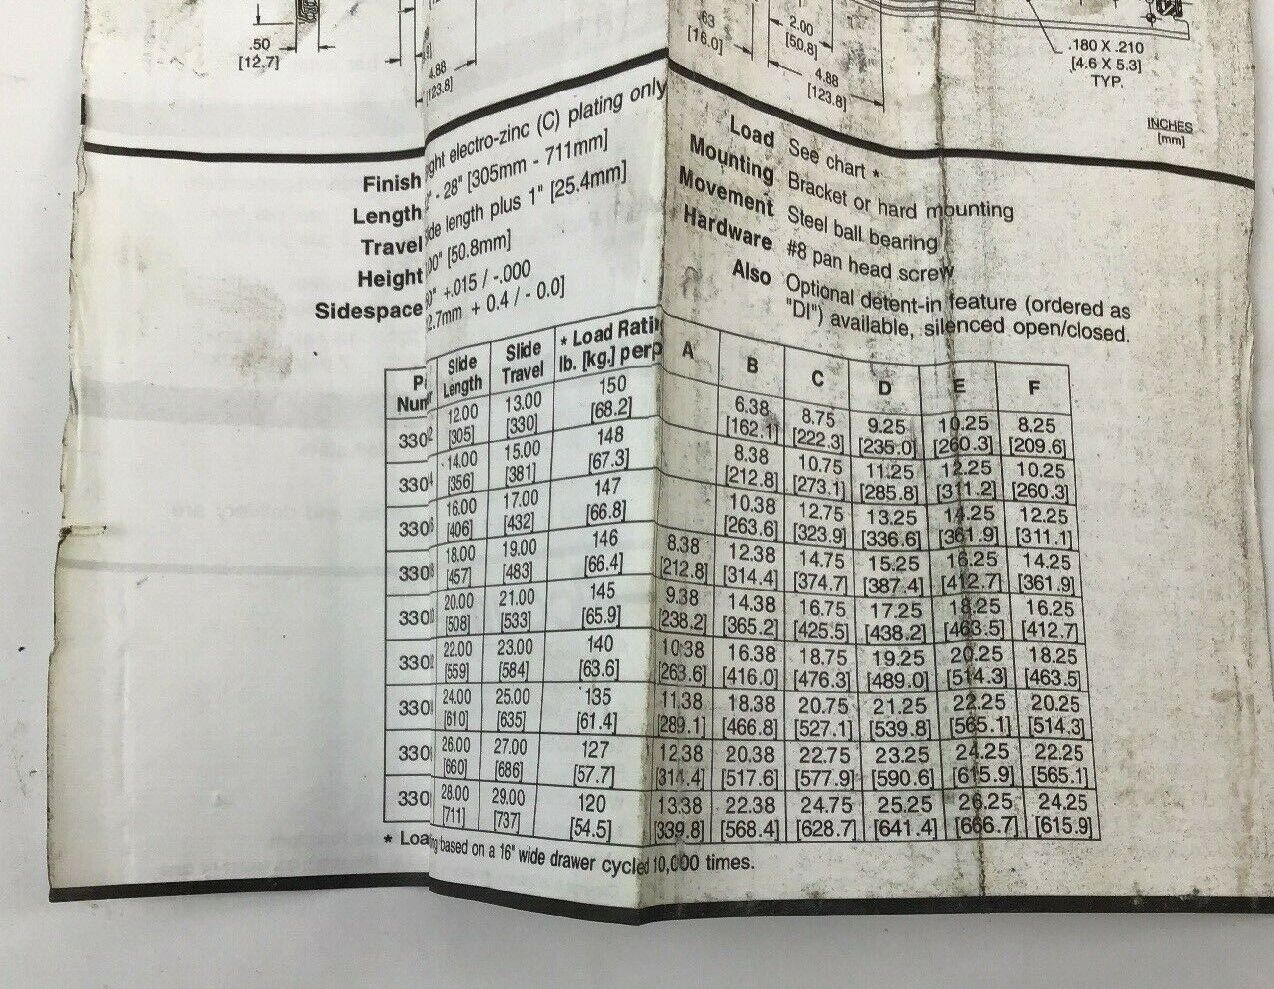 .50
[12.7]
4.88
[123.8]
.63
[16.0]
2.00
[50.8]
4.88
[123.8]
.180 X .210
[4.6 X 5.3]
TYP.
INCHES
[mm]
Finish ght electro-zinc (C) plating only
Length - 28" [305mm - 711mm]
Travel de length plus 1" [25.4mm]
Height 00" [50.8mm]
Sidespace 0" +.015 / -.000
2.7mm + 0.4 / - 0.0]
Load See chart *
Mounting Bracket or hard mounting
Movement Steel ball bearing
Hardware #8 pan head screw
Also Optional detent-in feature (ordered as
"DI") available, silenced open/closed.
Slide Length Slide Travel * Load Ratin lb. [kg.] per p A B C D E F
330 2 12.00 13.00 150 6.38 8.75 9.25 10.25 8.25
[305] [330] [68.2] [162.1] [222.3] [235.0] [260.3] [209.6]
330 4 14.00 15.00 148 8.38 10.75 11.25 12.25 10.25
[356] [381] [67.3] [212.8] [273.1] [285.8] [311.2] [260.3]
330 6 16.00 17.00 147 10.38 12.75 13.25 14.25 12.25
[406] [432] [66.8] [263.6] [323.9] [336.6] [361.9] [311.1]
330 8 18.00 19.00 146 8.38 12.38 14.75 15.25 16.25 14.25
[457] [483] [66.4] [212.8] [314.4] [374.7] [387.4] [412.7] [361.9]
330 20.00 21.00 145 9.38 14.38 16.75 17.25 18.25 16.25
[508] [533] [65.9] [238.2] [365.2] [425.5] [438.2] [463.5] [412.7]
330 22.00 23.00 140 10.38 16.38 18.75 19.25 20.25 18.25
[559] [584] [63.6] [263.6] [416.0] [476.3] [489.0] [514.3] [463.5]
330 24.00 25.00 135 11.38 18.38 20.75 21.25 22.25 20.25
[610] [635] [61.4] [289.1] [466.8] [527.1] [539.8] [565.1] [514.3]
330 26.00 27.00 127 12.38 20.38 22.75 23.25 24.25 22.25
[660] [686] [57.7] [314.4] [517.6] [577.9] [590.6] [615.9] [565.1]
330 28.00 29.00 120 13.38 22.38 24.75 25.25 26.25 24.25
[711] [737] [54.5] [339.8] [568.4] [628.7] [641.4] [666.7] [615.9]
* Loa ng based on a 16" wide drawer cycled 10,000 times.